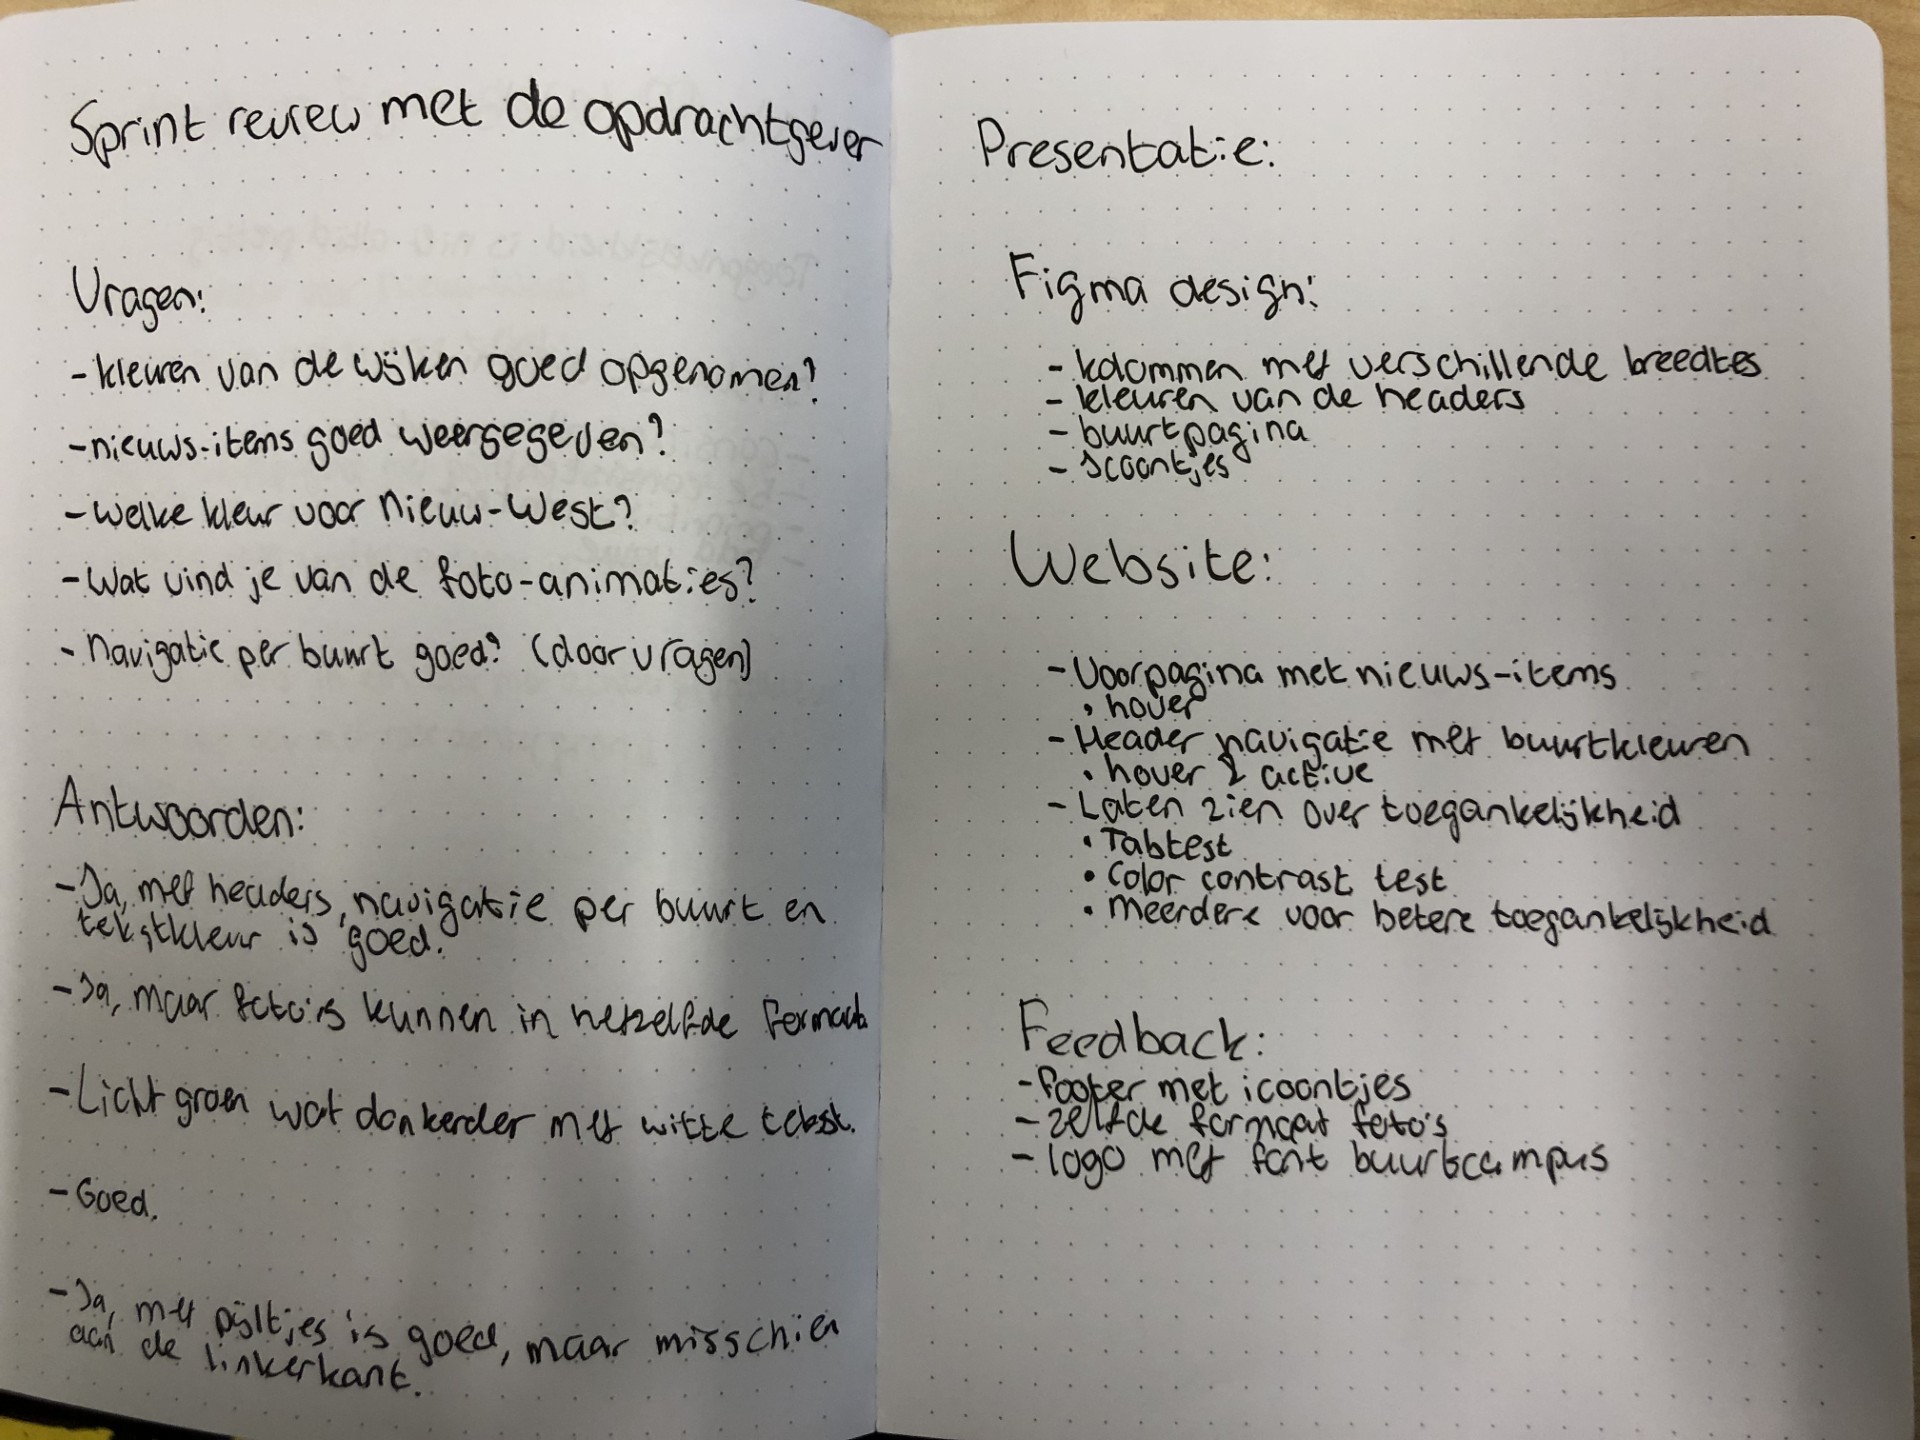 Sprint review met de opdrachtgever
Vragen:
- kleuren van de wijken goed opgenomen?
- nieuws-items goed weergegeven?
- welke kleur voor Nieuw-West?
- Wat vind je van de foto-animaties?
- Navigatie per buurt goed? (doorvragen)
Antwoorden:
- Ja, met headers, navigatie per buurt en
tekstkleur is goed.
- Ja, maar foto's kunnen in hetzelfde formaat
- Licht groen wat donkerder met witte tekst.
- Goed.
- Ja, met pijltjes is goed, maar misschien
aan de linkerkant.
Presentatie:
Figma design:
- kolommen met verschillende breedtes
- kleuren van de headers
- buurtpagina
- icoontjes
Website:
- Voorpagina met nieuws-items
• hover
- Header navigatie met buurtkleuren
• hover & active
- Laten zien over toegankelijkheid
• Tabtest
• Color contrast test
• meerdere voor betere toegankelijkheid
Feedback:
- footer met icoontjes
- zelfde formaat foto's
- logo met font buurtcampus